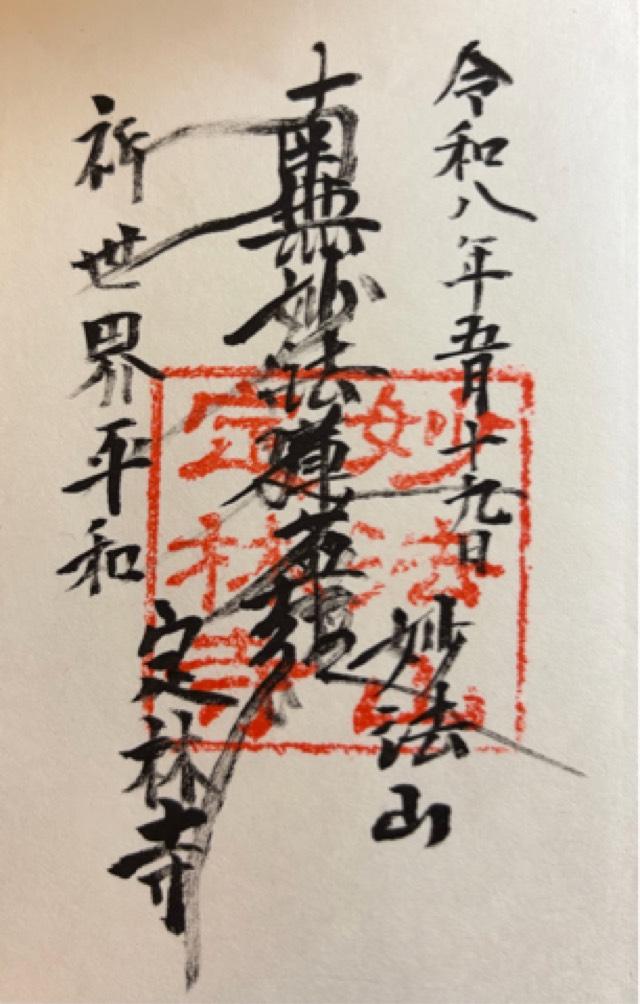 令和八年五月十九日
妙法山
南無妙法蓮華経
祈世界平和
定林寺
妙法山
定林寺